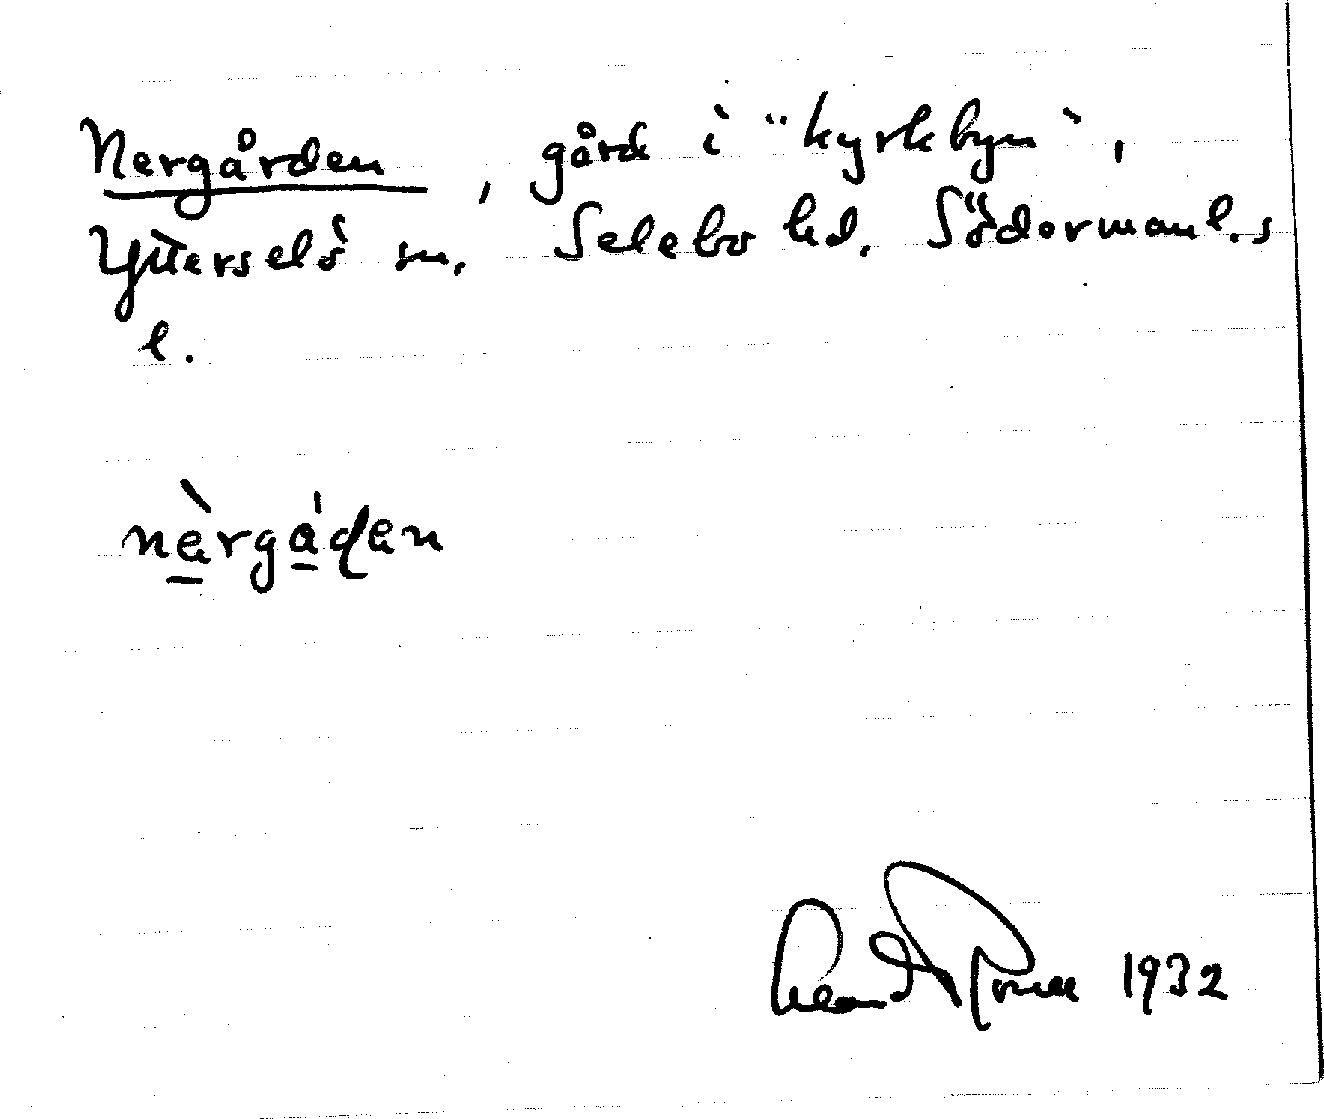 Nergården, gård i "Kyrkbyn",
Ytterselö sn. Selebo hd. Södermanl.s
l.
nèrgá̱ḍen
1932